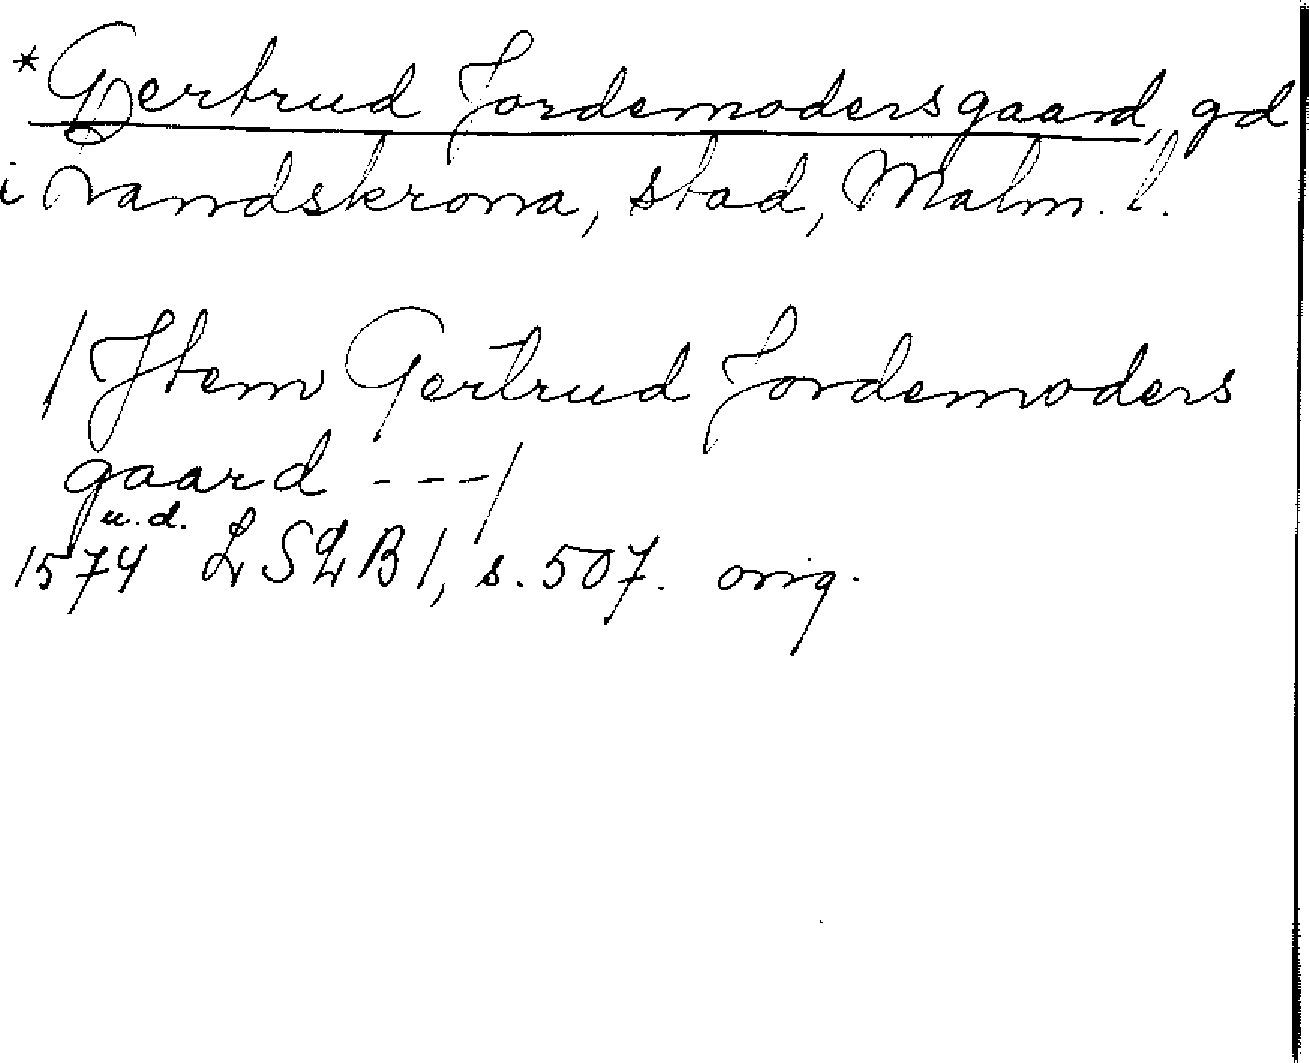 *Gertrud Jordemodersgaard, gd
i Landskrona, stad, Malm. l.
/Item Gertrud Jordemoders
gaard ---/
u.d.
1574 LSLB 1, s. 507. orig.